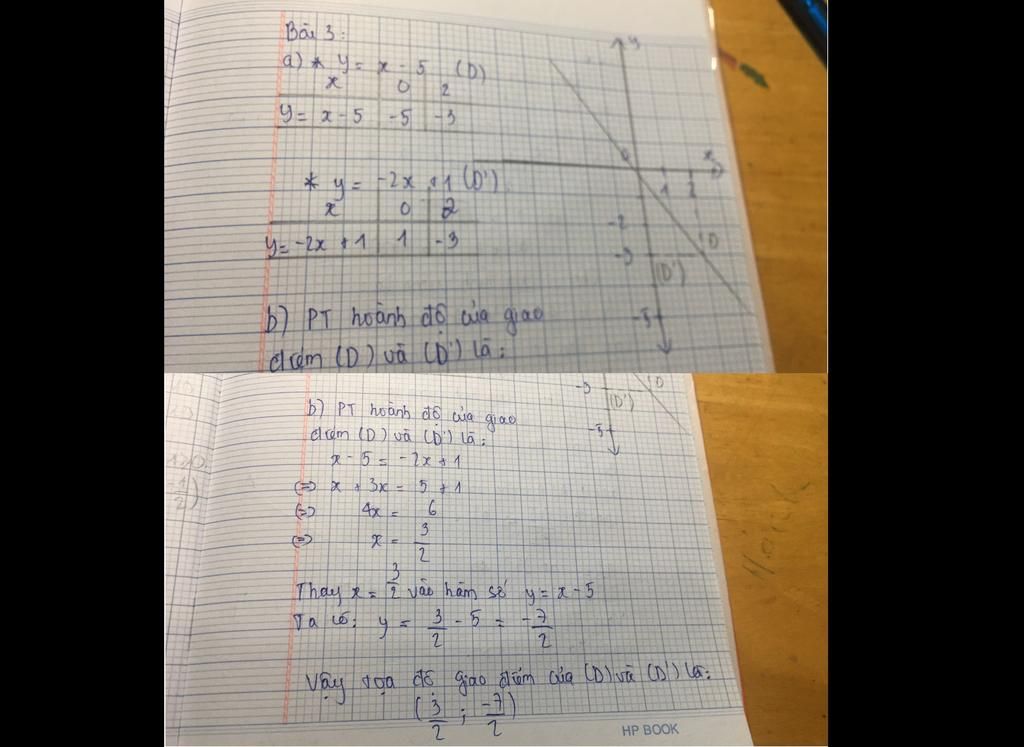 Bài 3:
a) * y = x - 5 (D)
x 0 2
y = x - 5 -5 -3
* y = -2x + 1 (D')
x 0 2
y = -2x + 1 1 -3
y
0
x
1 2
-2
-3
D
(D')
-5
b) PT hoành độ của giao
điểm (D) và (D') là:
-3
D
(D')
-5
b) PT hoành độ của giao
điểm (D) và (D') là:
x - 5 = -2x + 1
<=> x + 3x = 5 + 1
<=> 4x = 6
<=> x = 3/2
Thay x = 3/2 vào hàm số y = x - 5
Ta có: y = 3/2 - 5 = -7/2
Vậy tọa độ giao điểm của (D) và (D') là:
(3/2 ; -7/2)
HP BOOK